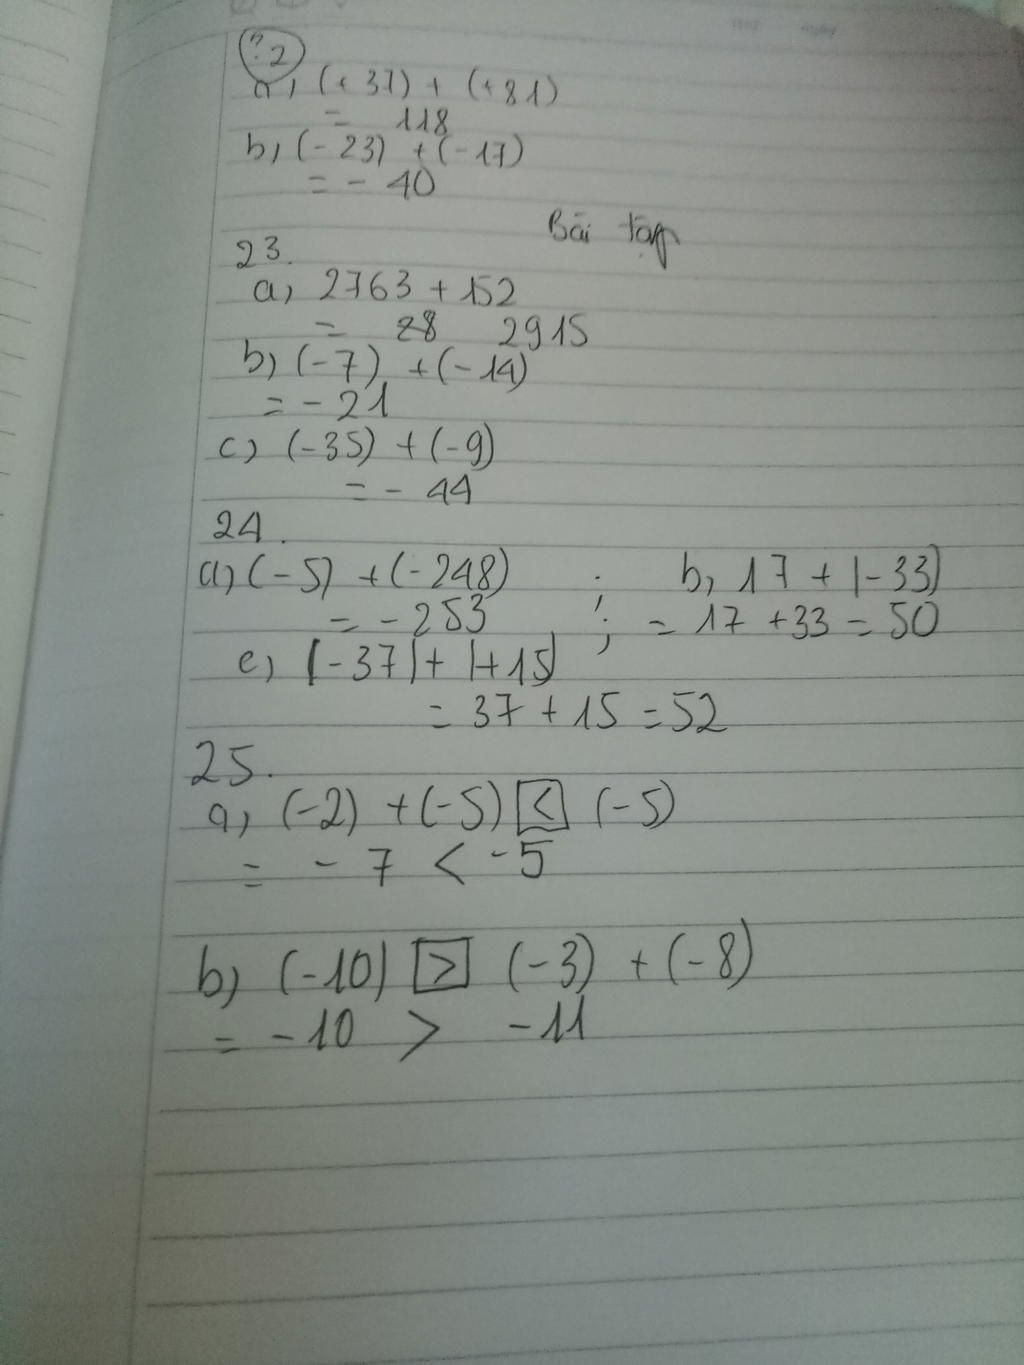 ? 2
a, (+37) + (+81)
= 118
b, (-23) + (-17)
= - 40
Bài tập
23.
a, 2763 + 152
= 28 2915
b, (-7) + (-14)
= - 21
c, (-35) + (-9)
= - 44
24.
a, (-5) + (-248) ; b, 17 + |-33|
= - 253 ; = 17 + 33 = 50
c, |-37| + |+15|
= 37 + 15 = 52
25.
a, (-2) + (-5) < (-5)
= - 7 < -5
b) (-10) > (-3) + (-8)
= -10 > -11